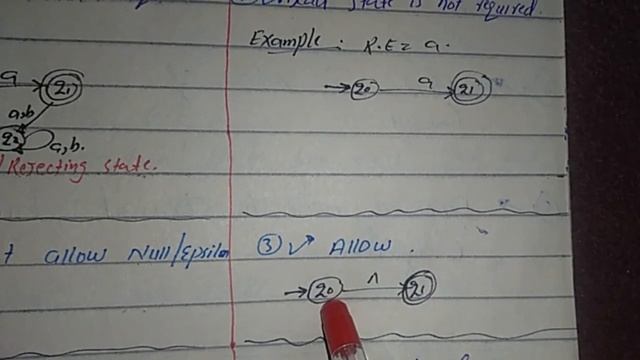 State is not required.
Example : R.E = a.
a q1
q0 a q1
a,b
q2 a,b.
Rejecting state.
allow Null/Epsilon
③ Allow.
q0 ʌ q1